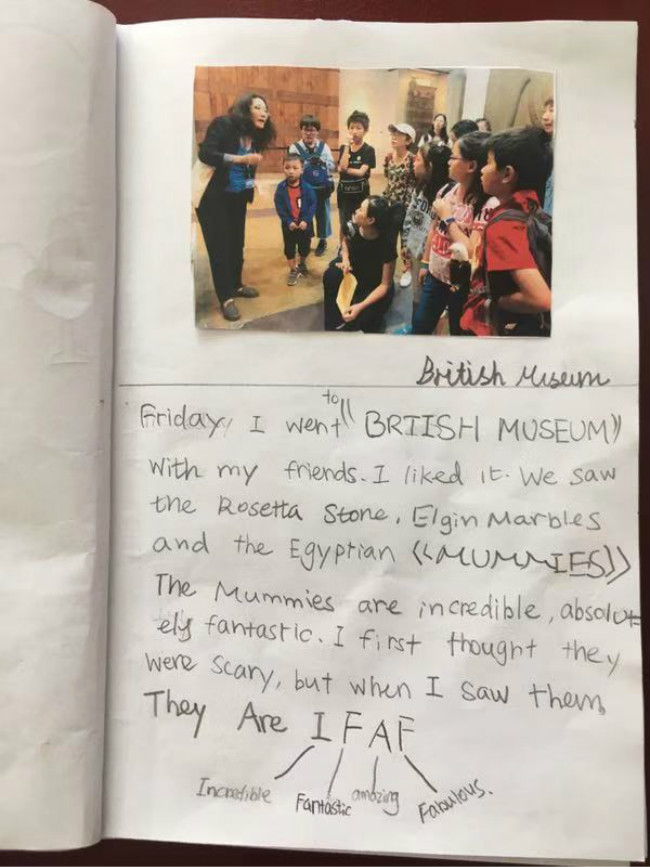 British Museum
to
Friday, I went 《BRTISH MUSEUM》
with my friends. I liked it. We saw
the Rosetta Stone, Elgin Marbles
and the Egyptian 《MUMMIES》
The Mummies are incredible, absolut
ely fantastic. I first thought they
were scary, but when I saw them
They Are I F A F
Incredible Fantastic amazing Fabulous.